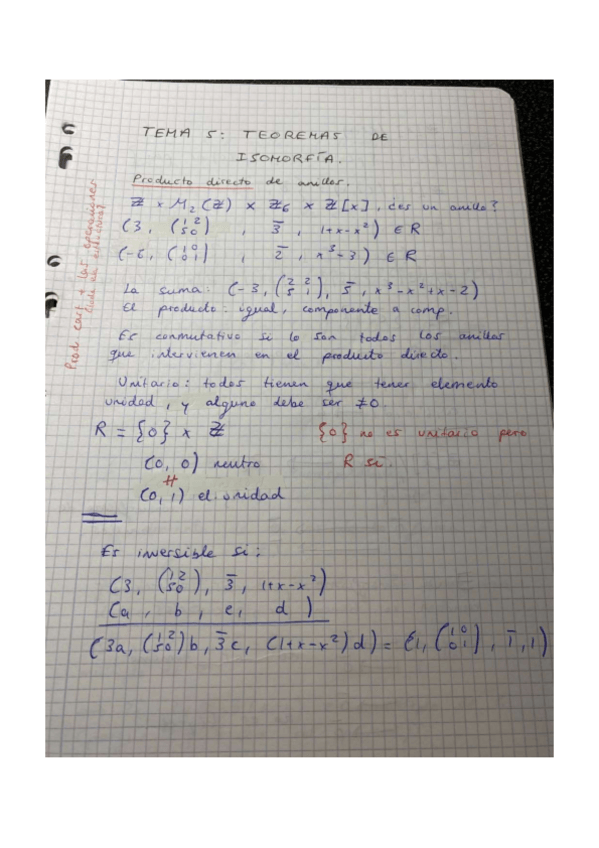 TEMA 5: TEOREMAS DE
ISOMORFÍA.
Producto directo de anillos.
ℤ × M₂(ℤ) × ℤ₆ × ℤ[x], ¿es un anillo?
(3, (1 2 / 5 0), 3̄, 1+x-x²) ∈ R
(-6, (1 0 / 0 1), 2̄, x³-3) ∈ R
La suma: (-3, (2 2 / 5 1), 5̄, x³-x²+x-2)
El producto: igual, componente a comp.
Es conmutativo si lo son todos los anillos
que intervienen en el producto directo.
Unitario: todos tienen que tener elemento
unidad, y alguno debe ser ≠0.
R = {0} × ℤ {0} no es unitario pero
(0, 0) neutro R sí.
≠
(0, 1) el unidad
Es inversible si:
(3, (1 2 / 5 0), 3̄, 1+x-x²)
(a, b, c, d)
(3a, (1 2 / 5 0)b, 3̄c, (1+x-x²)d) = (1, (1 0 / 0 1), 1̄, 1)
Prod cart + las operaciones